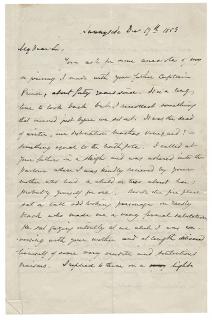 Sunnyside Dec 17th 1853
My dear Sir,
You ask for some anecdotes of
a journey I made with your father Captain
about forty years since. It is a long
time to look back but I recollect something
that occurred just before we set out. It was the dead
of winter, our destination
something equal to the north pole. I called at
your fathers in a sleigh and was ushered into the
parlour where I was kindly received by your
mother who had a child or two about her;
probably yourself for one. beside the fire place
sat a tall odd looking personage in rusty
black who made me a very formal salutation.
He sat gazing intently at me while I was con-
versing with your mother and at length delivered
himself of some very erudite and
. I replied to them in a light